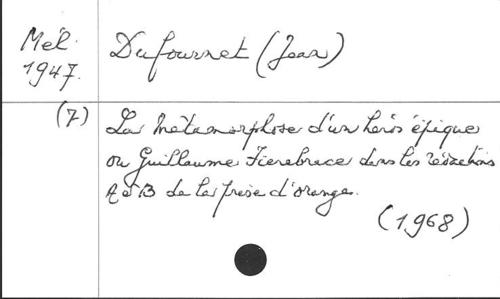 Mél.
1947.
Dufournet (Jean)
(7)
La Métamorphose d'un héros épique
ou Guillaume Fierebrace dans les rédactions
A et B de la prise d'orange.
(1968)